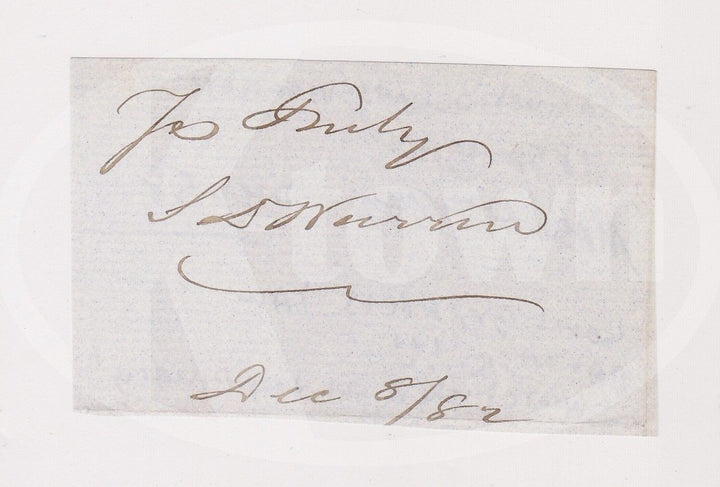 Yrs Truly
S D Warren
Dec 8/82